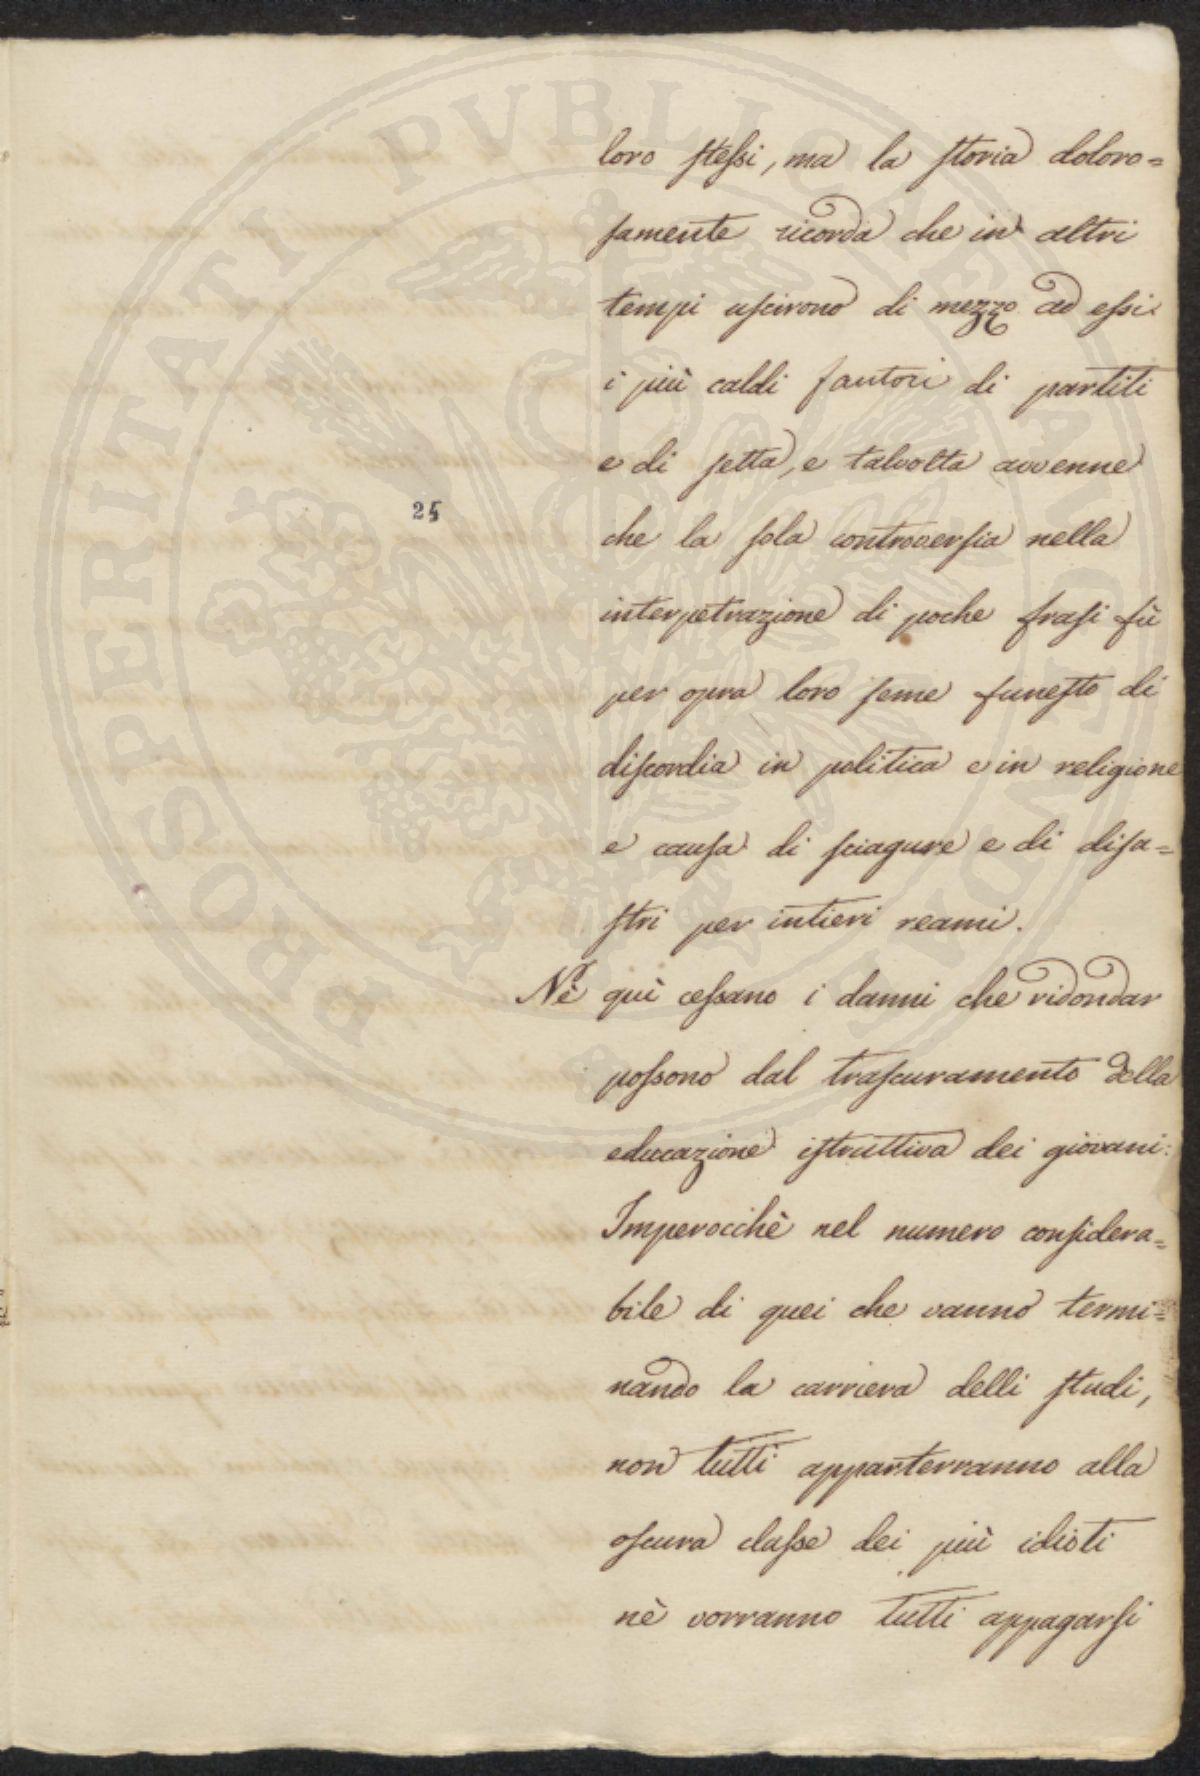 loro steſsi, ma la storia doloro=
samente ricorda che in altri
tempi uscirono di mezzo ad eſsi
i più caldi fautori di partiti
e di setta, e talvolta avvenne
che la sola controversia nella
25
interpetrazione di poche frasi fù
per opra loro seme funesto di
discordia in politica e in religione
e causa di sciagure e di disa=
stri per intieri reami.
Nè quì ceſsano i danni che ridondar
poſsono dal trascuramento della
educazione istruttiva dei giovani:
Imperocchè nel numero considera=
bile di quei che vanno termi=
nando la carriera delli studi,
non tutti apparterranno alla
oscura claſse dei più idioti
nè vorranno tutti appagarsi
PROSPERITATI PVBLICAE AVGENDAE